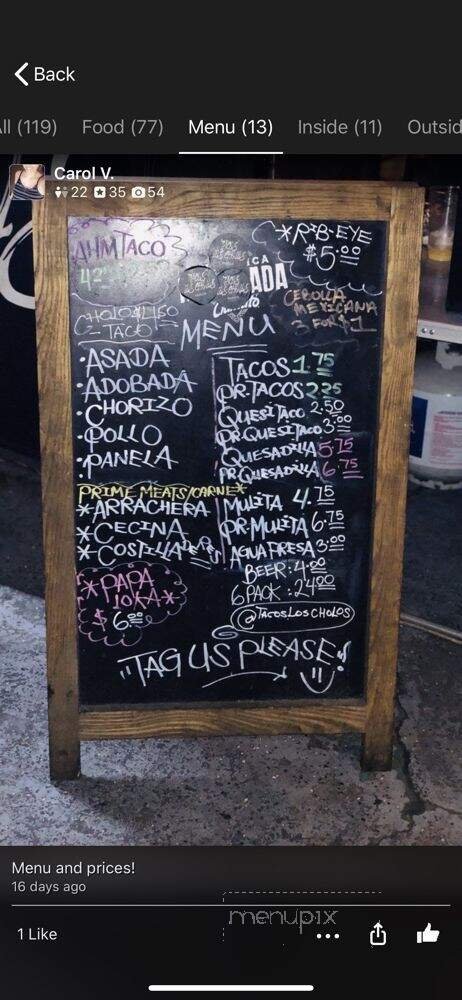 Back
ll (119) Food (77) Menu (13) Inside (11) Outsid
Carol V.
22 35 54
AHM TACO
*RIB-EYE
$5.00
ADA
CEBOLLA
MEXICANA
3 FOR $1
TACO
MENU
•ASADA
•ADOBADA
•CHORIZO
•POLLO
•PANELA
PRIME MEATS/CARNE*
*ARRACHERA
*CECINA
*COSTILLA DE RES
TACOS 1.75
PR.TACOS 2.25
QUESITACO 2.50
PR.QUESITACO 3.00
QUESADILLA 5.75
PR.QUESADILLA 6.75
MULITA 4.75
PR.MULITA 6.75
AGUA FRESA 3.00
BEER: 4.00
6 PACK: 24.00
@TACOSLOSCHOLOS
*PAPA
LOKA*
$6.00
"TAG US PLEASE!
Menu and prices!
16 days ago
1 Like
menupix